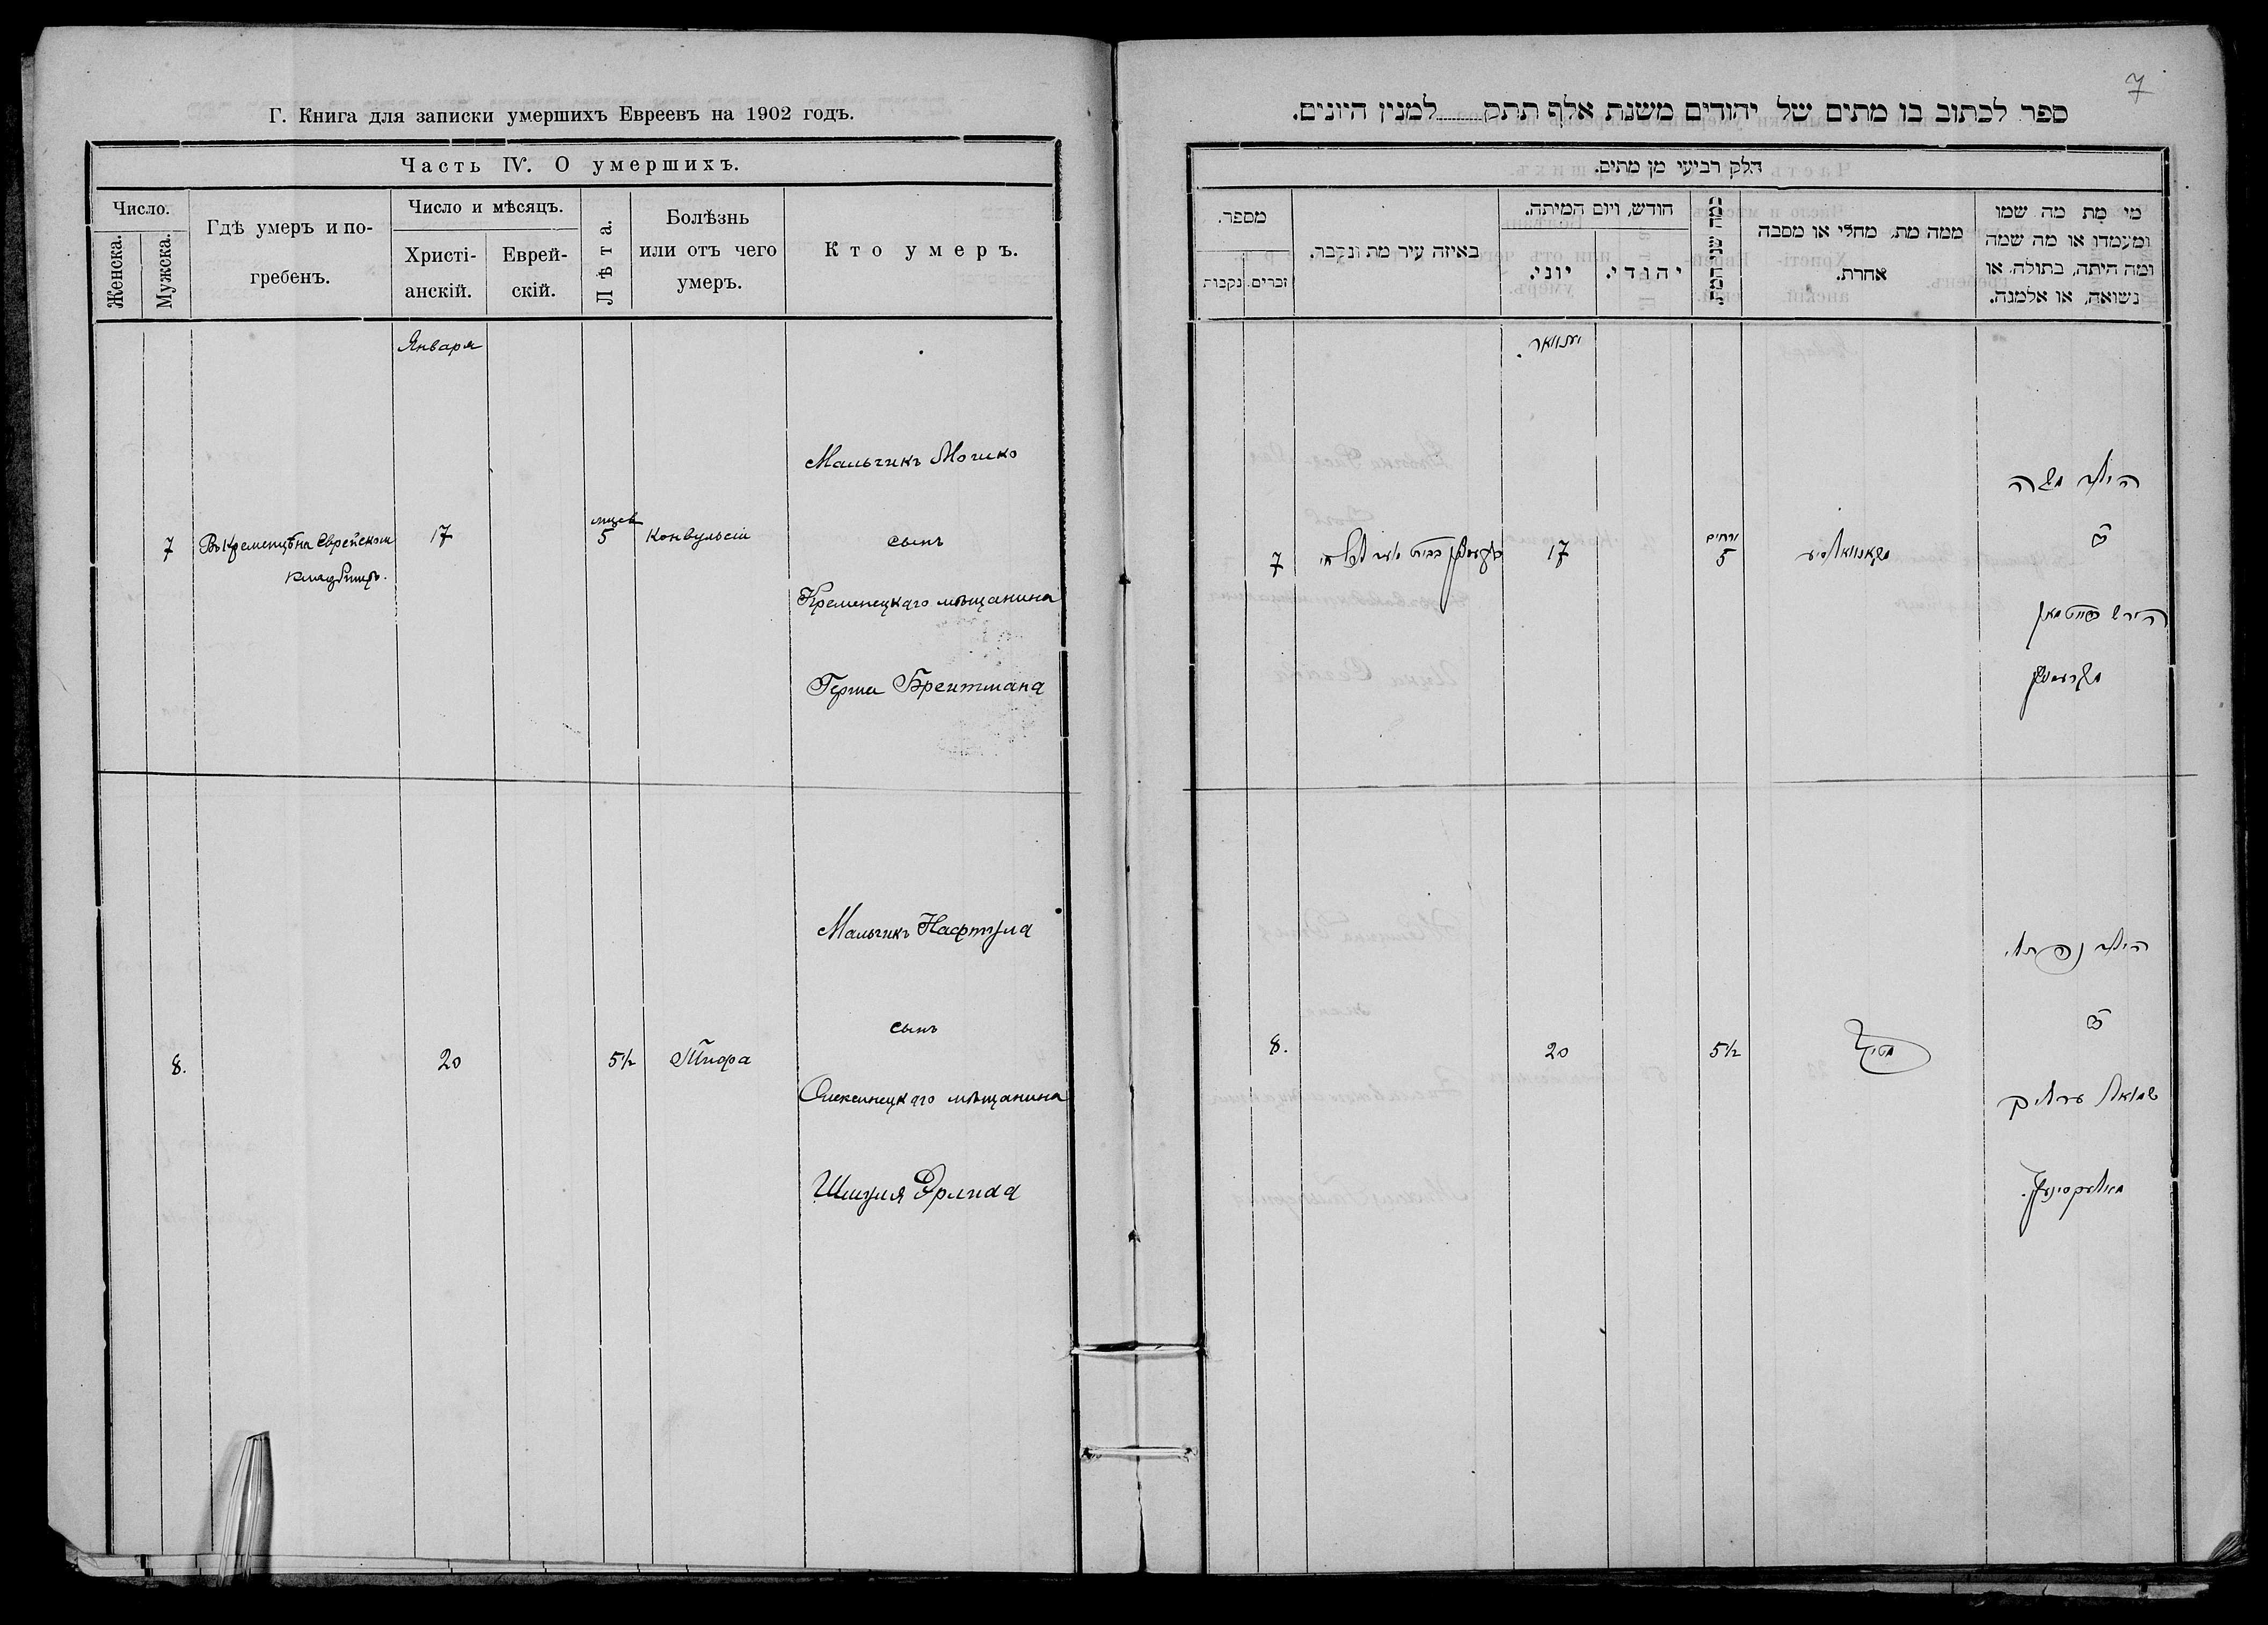 Г. Книга для записки умершихъ Евреевъ на 1902 годъ.
Часть IV. О умершихъ.
Число.
Женска.
Мужска.
Гдѣ умеръ и погребенъ.
Число и мѣсяцъ.
Христі-
анскій.
Еврей-
скій.
Лѣта.
Болѣзнь
или отъ чего
умеръ.
Кто умеръ.
Января
Мальчикъ Мошко
7
Въ Кременцѣ на Еврейскомъ
кладбищѣ.
17
5
Конвульсіи
сынъ
Кременецкаго мѣщанина
Герша Брейтмана
Мальчикъ Нафтула
8.
20
5½
сынъ
мѣщанина
Шмуля Эрлиха
7
ספר לכתוב בו מתים של יהודים משנת אלף תתק למנין היונים.
חלק רביעי מן מתים.
מספר.
זכרים.
נקבות
באיזה עיר מת ונקבר.
חודש, ויום המיתה.
יוני.
יהודי.
כמה שני חייו.
ממה מת, מחלי או מסבה
אחרת.
מי מת מה שמו
ומעמדו או מה שמה
ומה היתה, בתולה, או
נשואה, או אלמנה.
יאנואר
הילד משה
7
17
ירחים
5
ב
הירש
הילד נפתלי
8.
20
5½
ב
שמואל ערליך